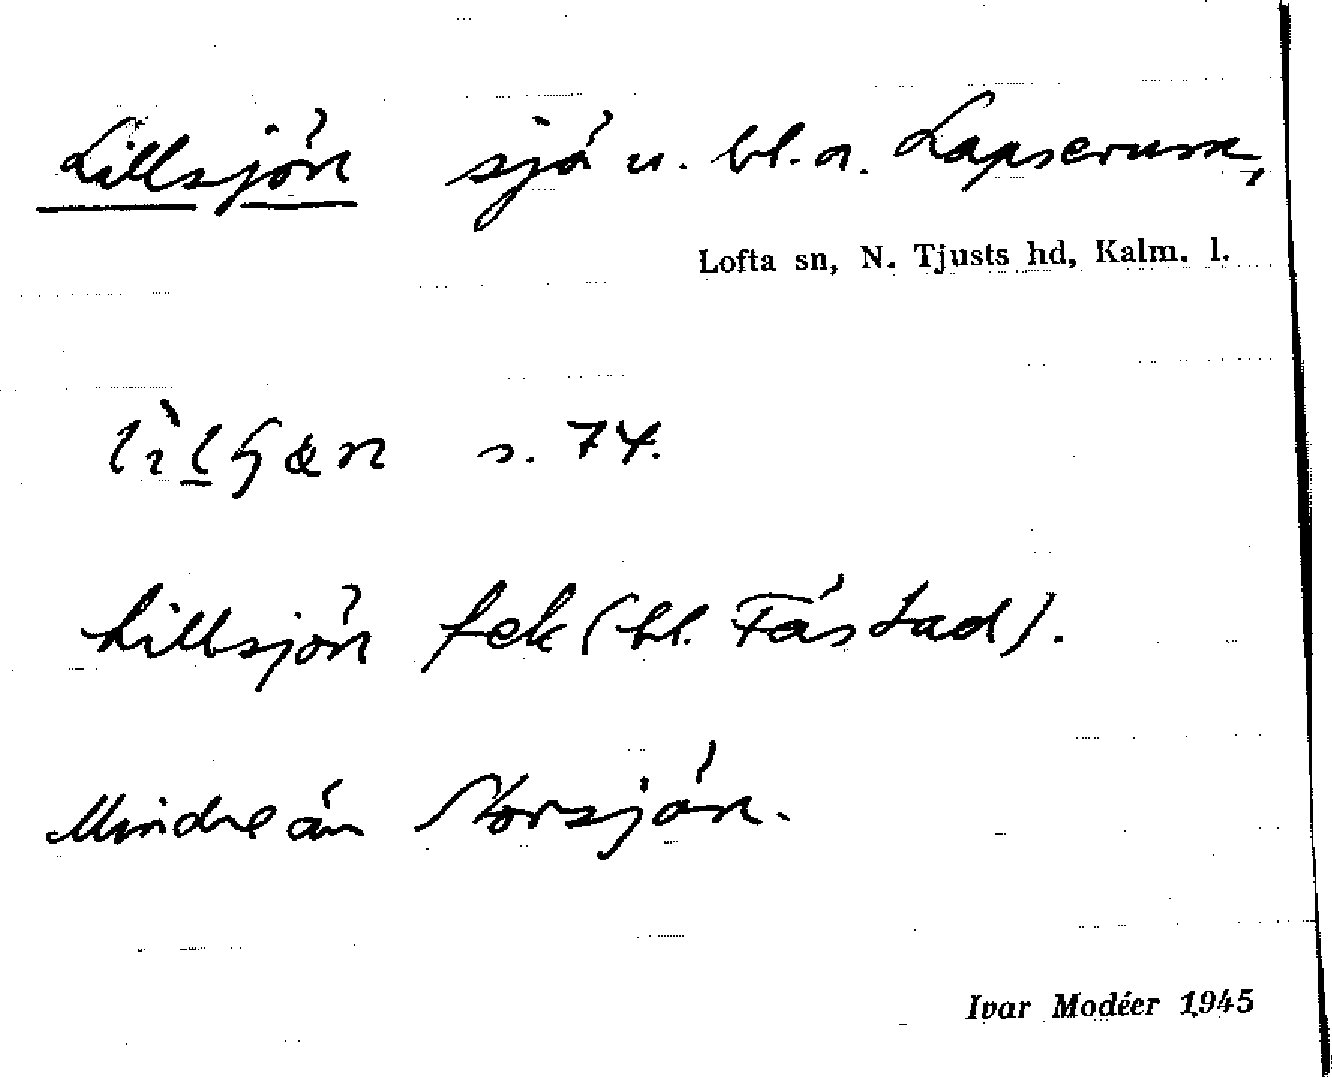 Lillsjön sjö u. bl. a. Lapserum,
Lofta sn, N. Tjusts hd, Kalm. l.
s. 74.
Lillsjön fek (bl. Fästad).
Mindre än Norsjön.
Ivar Modéer 1945